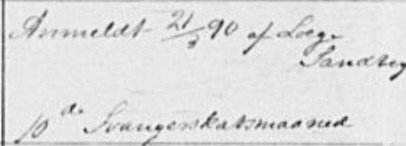 Anmeldt 21/3 90 af Læge
Sandberg
10de Svangerskabsmaaned